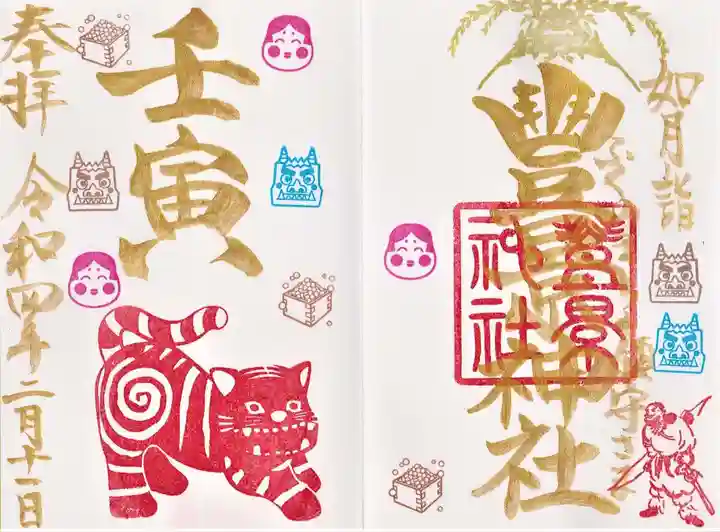 如月詣
豐景神社
豊景神社
壬寅
奉拝
令和四年二月十一日